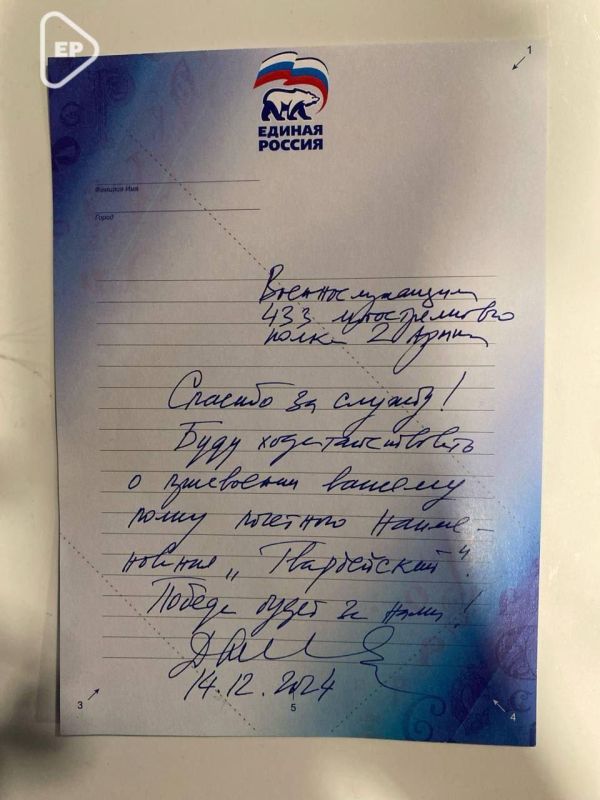 ЕР
1
ЕДИНАЯ
РОССИЯ
Фамилия Имя
Город
Военнослужащим
433 мотострелкового
полка 2 Армии
Спасибо за службу!
Буду ходатайствовать
о присвоении вашему
полку почётного наиме-
нования „Гвардейский“.
Победа будет за нами!
14.12.2024
3
5
4